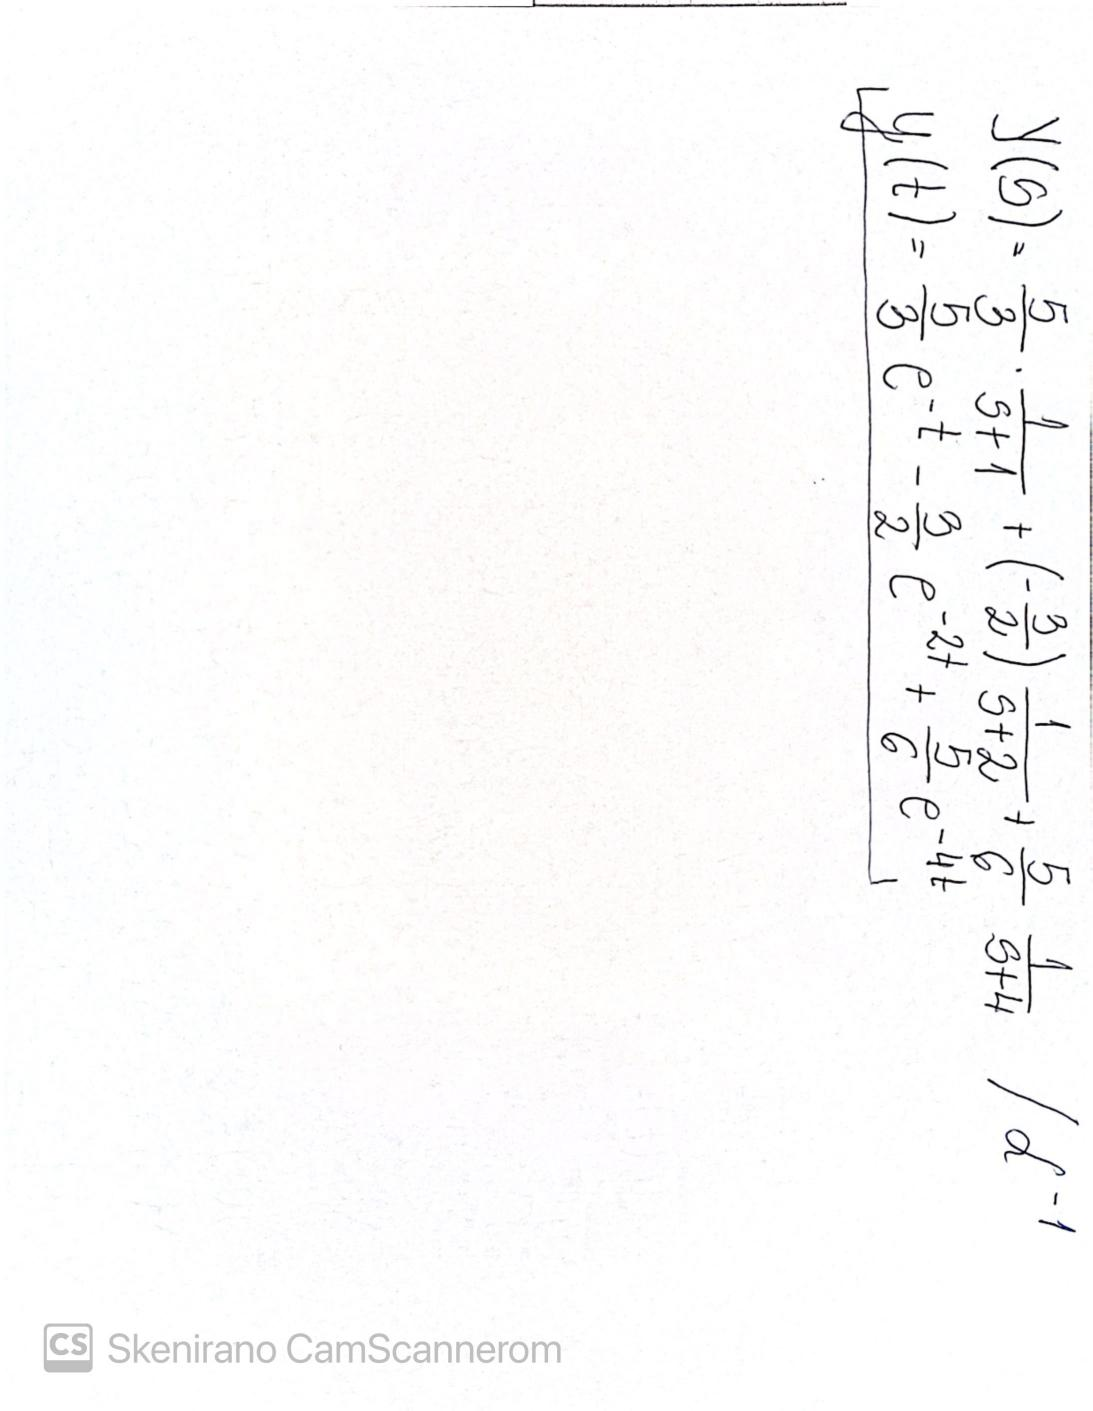 Y(s) = 5/3 · 1/(s+1) + (-3/2) 1/(s+2) + 5/6 1/(s+4) / ℒ⁻¹
y(t) = 5/3 e^(-t) - 3/2 e^(-2t) + 5/6 e^(-4t)
CS Skenirano CamScannerom